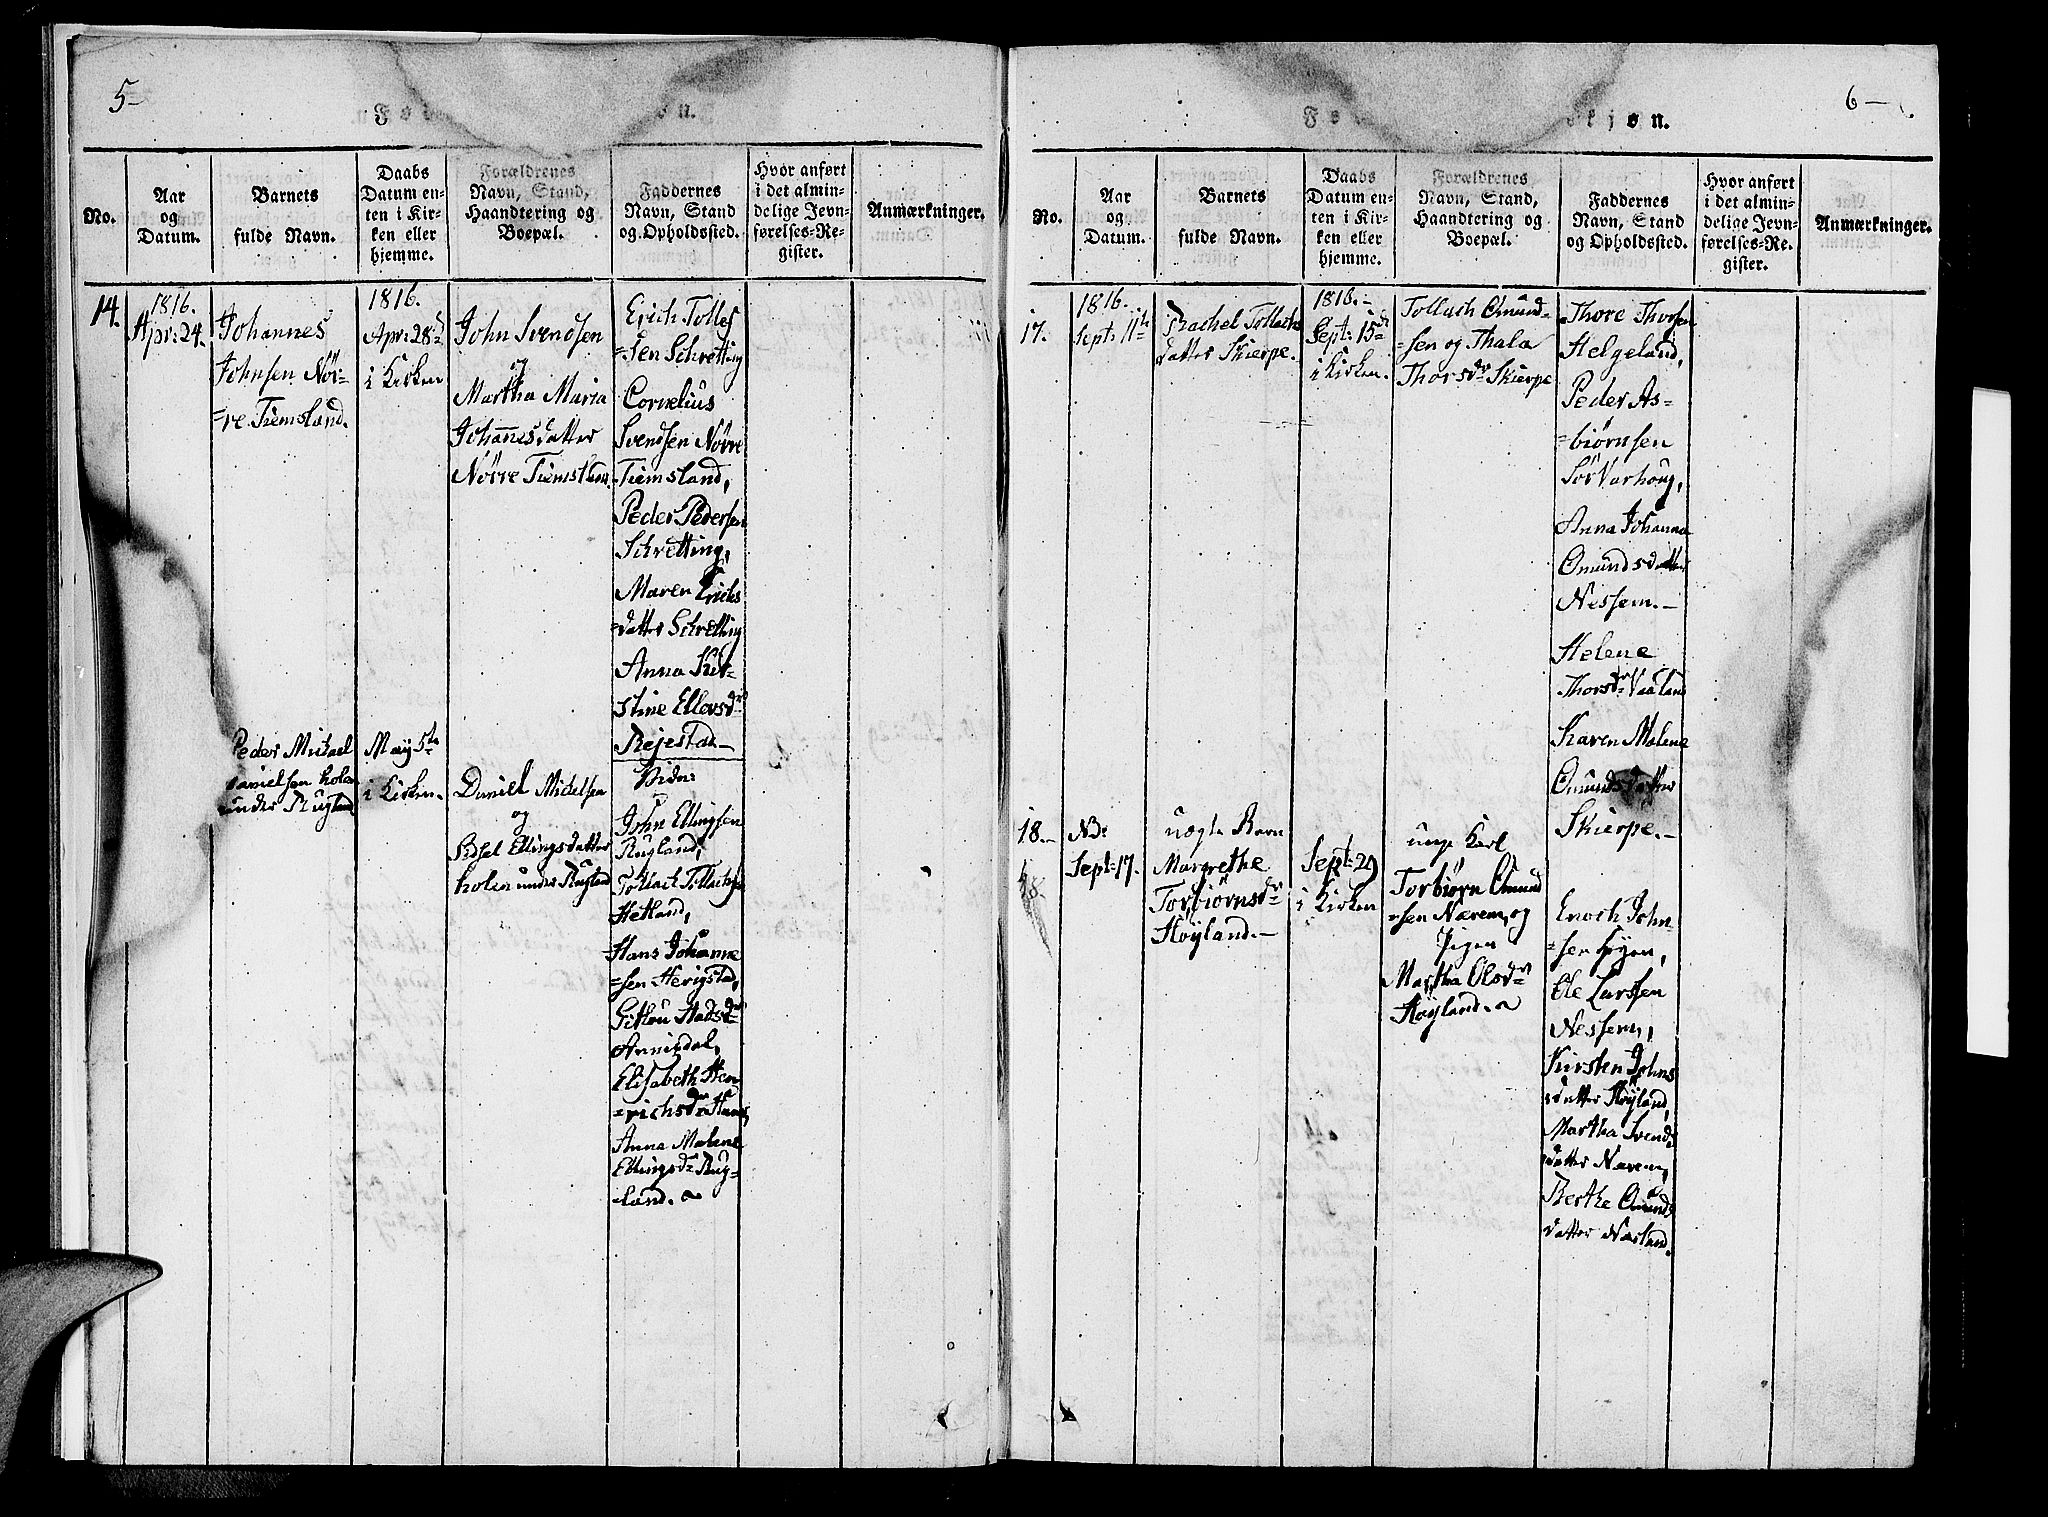 5-
No.
Aar
og
Datum.
Barnets
fulde Navn.
Daabs
Datum en-
ten i Kir-
ken eller
hjemme.
Forældrenes
Navn, Stand,
Haandtering og
Boepæl.
Faddernes
Navn, Stand
og Opholdssted.
Hvor anført
i det almin-
delige Jevn-
førelses-Re-
gister.
Anmærkninger.
14.
1816.
Apr: 24.
Johannes
Johnsen Nör-
=re Tiemsland.
1816.
Apr: 28de
i Kirken
John Svendsen
og
Martha Maria
Johannesdatter
Nörre Tiemsland
Erich Tollef
=sen Schretting
Cornelius
Svendsen Nörre
Tiemsland,
Peder Pedersen
Schretting,
Maren Erichs
=datter Schretting
Anna Kir-
stine Ellersdr
Rejestad-
Peder Mickael
Danielsen holen
under Rugland
May 5te
i Kirken.
Daniel Mickelsen
og
Sidsel Ellingsdatter
holen under Rugland
John Ellingsen
Rugland,
Tollach Tollachsen
Hetland,
Hans Johanne
=sen Herigstad,
Elisabeth Hen
=richsdr
Anna Malene
Ellingsdr Rug-
=land.
6-
No.
Aar
og
Datum.
Barnets
fulde Navn.
Daabs
Datum en-
ten i Kir-
ken eller
hjemme.
Forældrenes
Navn, Stand,
Haandtering og
Boepæl.
Faddernes
Navn, Stand
og Opholdssted.
Hvor anført
i det almin-
delige Jevn-
førelses-Re-
gister.
Anmærkninger.
17.
1816.
Sept: 11te
Rachel Tollachs
datter Skierpe.
1816.-
Sept: 15de
i Kirken.
Tollach Omund-
=sen og Thala
Thorsdr Skierpe
Thore Thorsen
Helgeland,
Peder As=
=biörnsen
Sör Varhoug,
Anna Johanna
Omundsdatter
Nessem.-
Helene
Thorsdr Vaaland
Karen Malene
Omundsdatter
Skierpe.-
18.-
Sept: 17.
uægte Barn
Margrethe
Torbiörnsdr
Höyland.-
Sept: 29
i Kirken
unge Karl
Torbiörn Omund
=sen Nærem, og
Pigen
Martha Olsdr
Höyland.
Enoch John-
=sen
Ole Larssen
Nessem,
Kirsten Johns
datter Höyland,
Martha Svends
datter Nærem,
Berthe Omunds
datter Nærland.